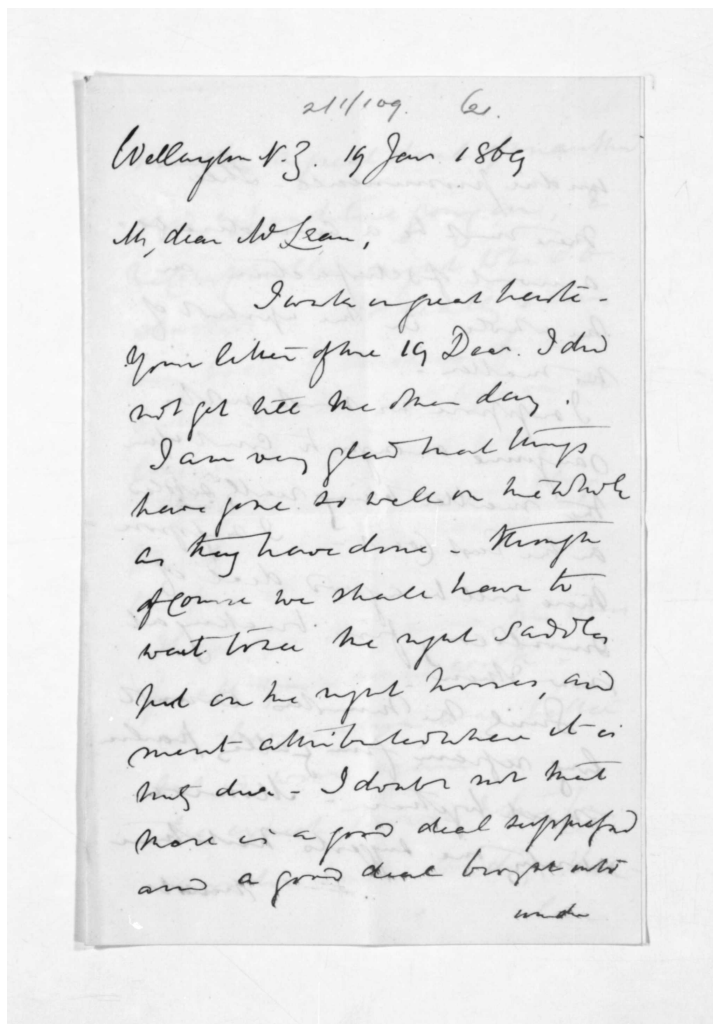 211/109. 61.
Wellington N.Z. 19 Jan 1869
My dear McLean,
I write in great haste -
Your letter of the 19 Decr. I did
not get till the other day.
I am very glad that things
have gone so well on the whole
as they have done - though
of course we shall have to
wait to see the right saddles
put on the right horses, and
merit attributed where it is
truly due - I doubt not that
there is a good deal suppressed
and a good deal brought into
undue